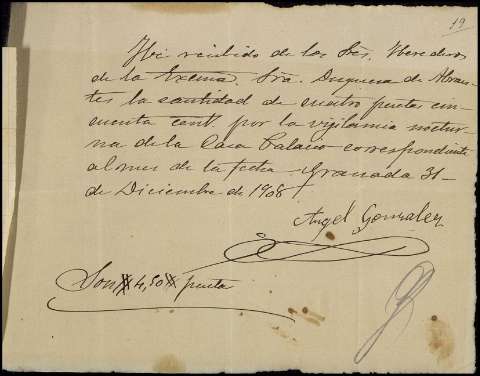 19
He recibido de los Sres. Herederos
de la Excma. Sra. Duquesa de Abran-
tes la cantidad de cuatro pesetas cin-
cuenta cent. por la vigilancia noctur-
na de la Casa Palacio correspondiente
al mes de la fecha Granada 31
de Diciembre de 1908
Angel Gonzalez
Son # 4,50 # pesetas